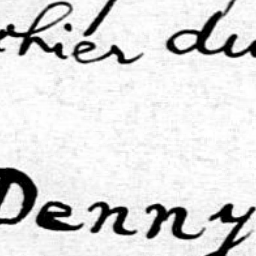 chier du
Denny